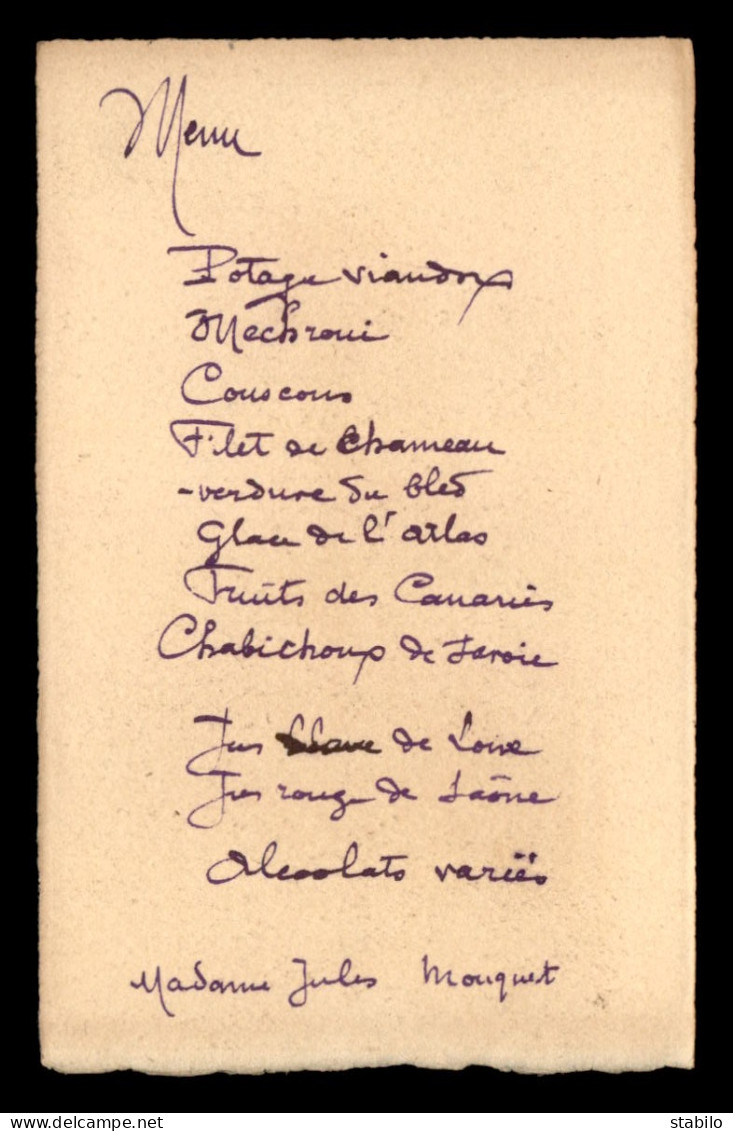 Menu
Potage viandox
Mechroui
Couscous
Filet de Chameau
-verdure du bled
Glace de l'atlas
Fruits des Canaries
Chabichoux de Savoie
Jus blanc de Loire
Jus rouge de Saône
Alcoolats variés
Madame Jules Mouquet
stabilo